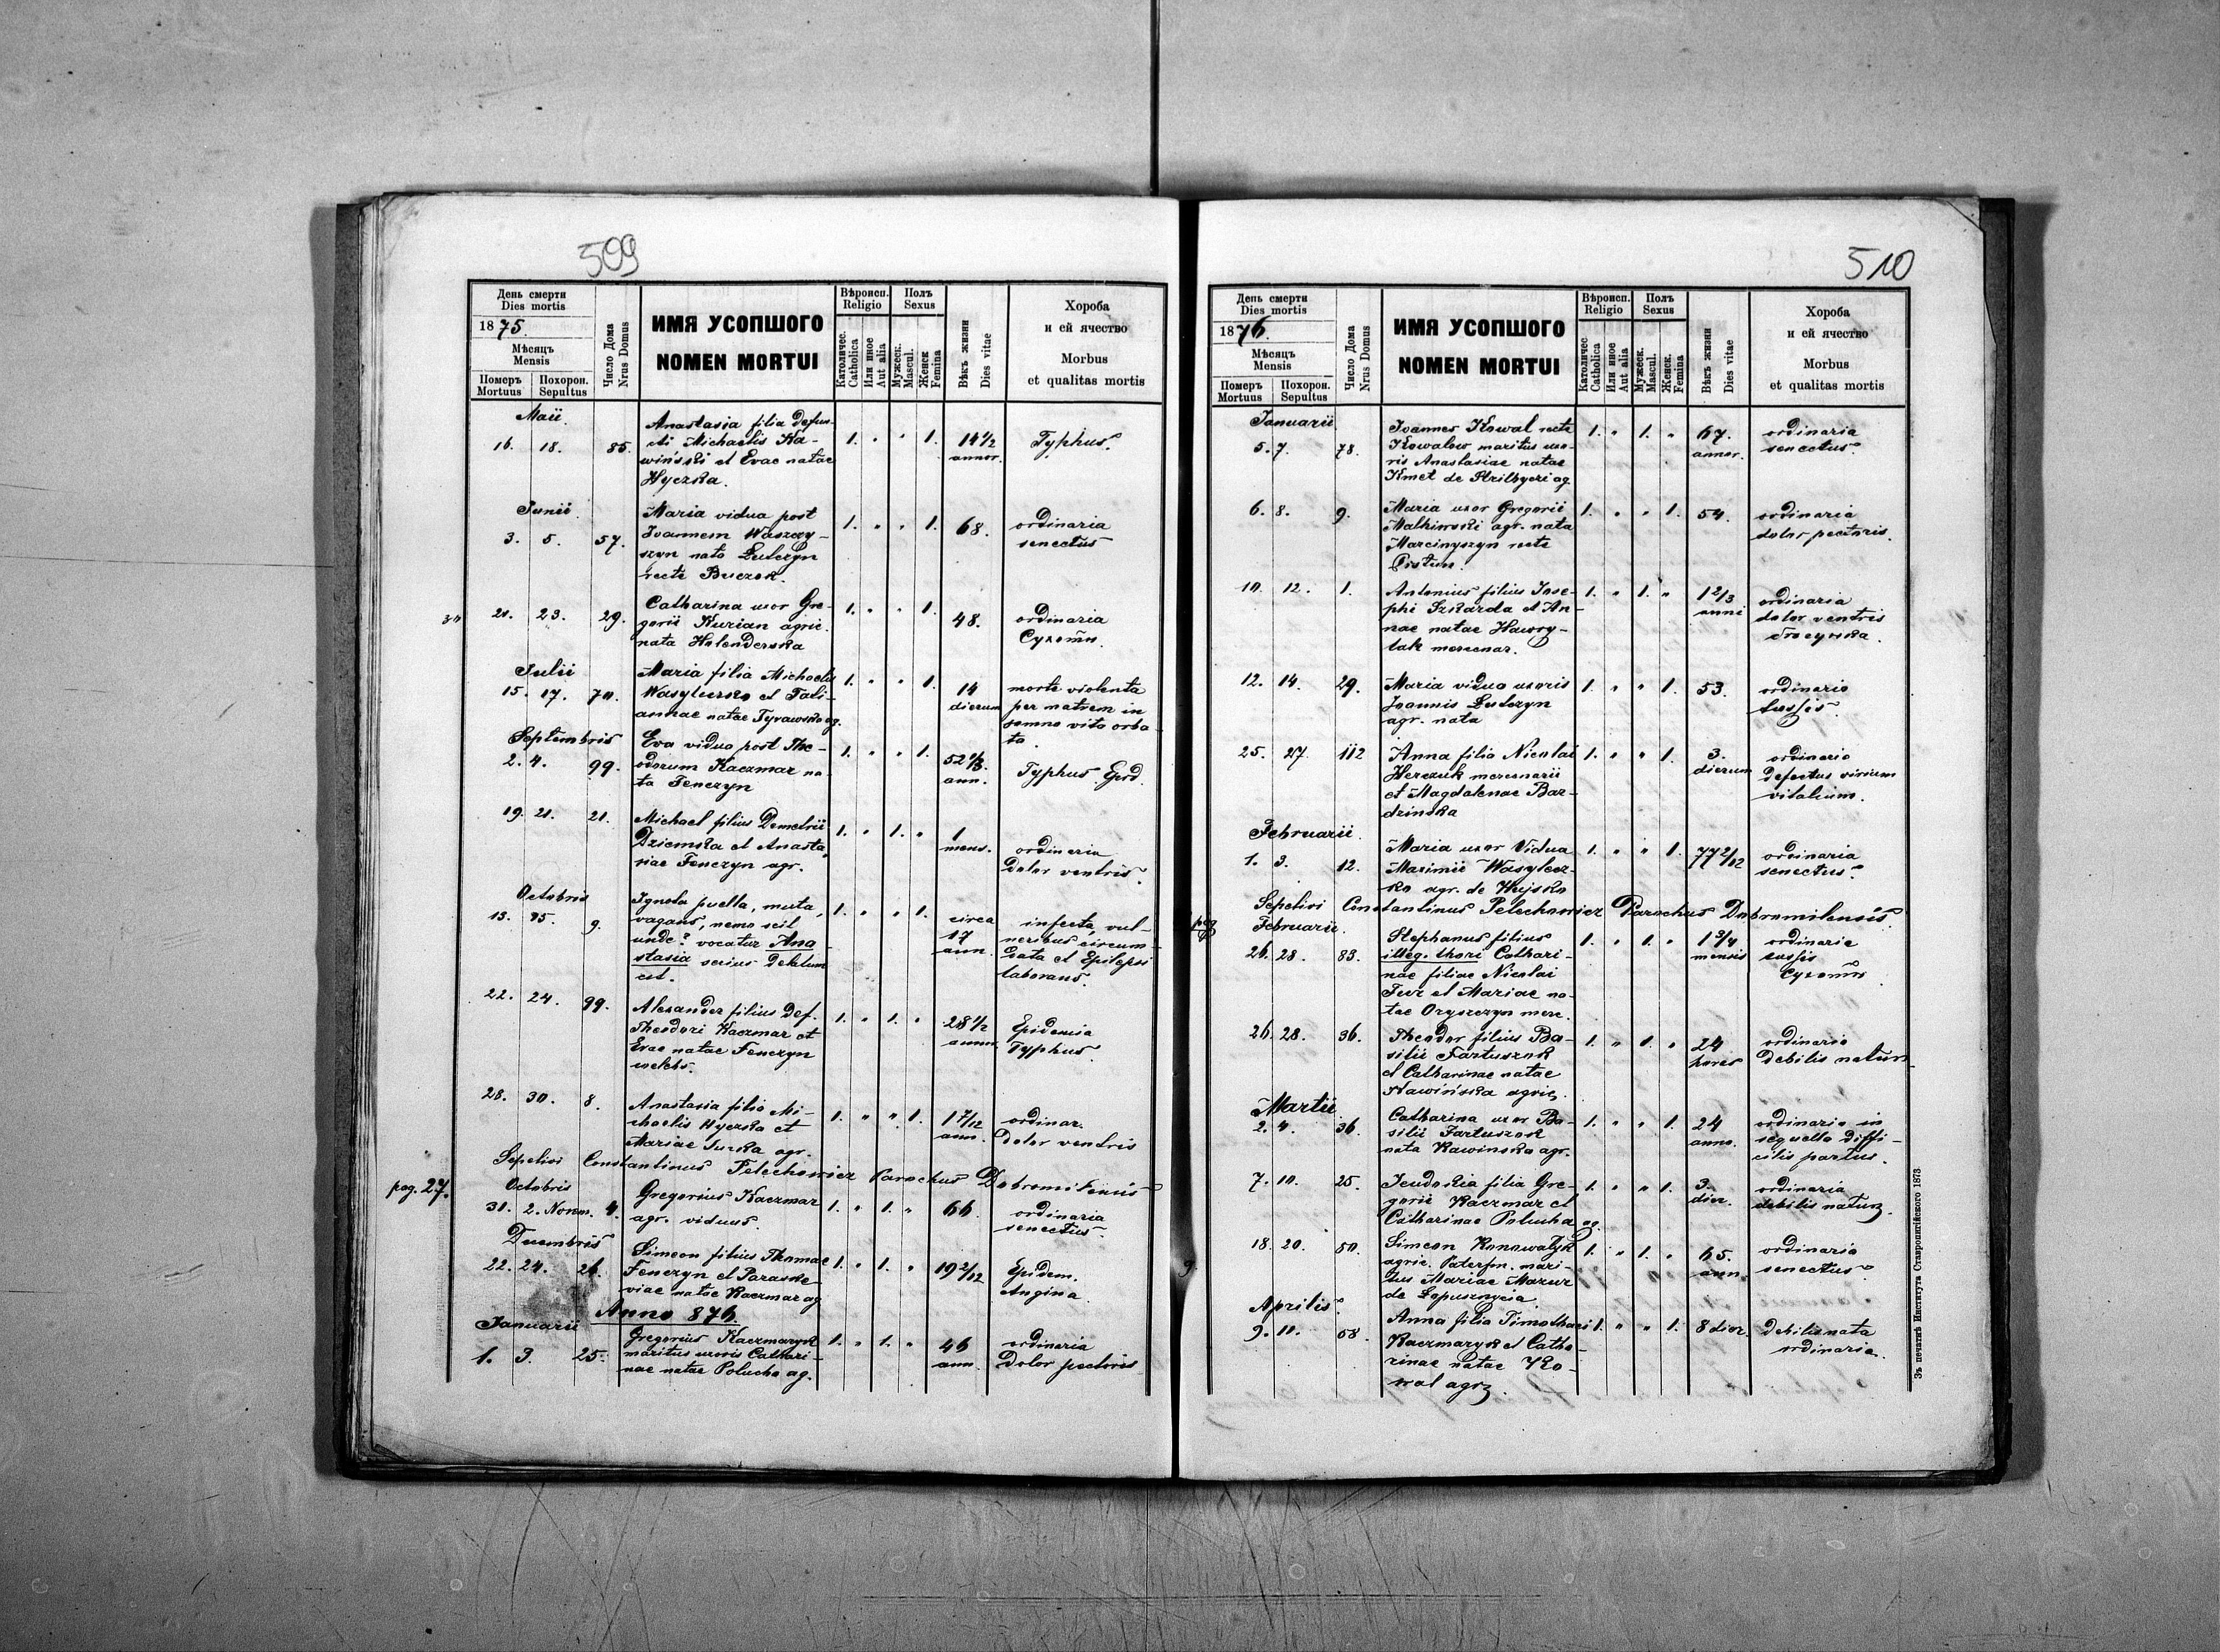 509
День смерти
Dies mortis
1875.
Мѣсяцъ
Mensis
Померъ Mortuus
Похорон. Sepultus
Число Дома
Nrus Domus
ИМЯ УСОПШОГО
NOMEN MORTUI
Вѣроисп.
Religio
Католичес. Catholica
Или иное Aut alia
Полъ
Sexus
Мужеск. Mascul.
Женск Femina
Вѣкъ жизни
Dies vitae
Хороба
и ей ячество
Morbus
et qualitas mortis
Maii.
16. 18. 85. Anastasia filia defun- 1. " " 1. 14 1/2 annor. Typhus.
cti Michaelis Ka-
wiński et Evae natae
Hyczka.
Junii.
3. 5. 57. Maria vidua post 1. " " 1. 68. ordinaria
Joannem Waszczy- senectus
szyn nata Lulczyn
recte Buczek.
21. 23. 29. Catharina uxor Gre- 1. " " 1. 48. ordinaria
gorii Kurian agric. Сухоты
nata Holenderska
Julii
15. 17. 70. Maria filia Michaelis 1. " " 1. 14 dierum morte violenta
Wasyleczko et Tati- per matrem in
annae natae Tyrawska ag. somno vita orba-
ta.
Septembris
2. 4. 99. Eva vidua post The- 1. " " 1. 52 1/3. ann. Typhus Epid.
odorum Kaczmar na-
ta Fenczyn
19. 21. 21. Michael filius Demetrii 1. " 1. " 1 mens. ordinaria
Dziemska et Anasta- Dolor ventris.
siae Fenczyn agr.
Octobris
13. 15. 9. Ignota puella, muta, 1. " " 1. circa 17 ann. infecta, vul-
vagans, nemo scit neribus circum-
unde? vocatur Ana- data et Epilepsi
stasia serius delatum laborans.
est.
22. 24. 99. Alexander filius def. 1. " 1. " 28 1/2 annor. Epidemia
Theodori Kaczmar et Typhus.
Evae natae Fenczyn
caelebs.
28. 30. 8. Anastasia filia Mi- 1. " " 1. 1 7/12 ann. ordinar.
chaelis Hyczka et Dolor ventris
Mariae Jurka agr.
Sepelivi Constantinus Pelechowicz Parochus Dobromilensis
pag. 27. Octobris
31. 2. Novem. 4. Gregorius Kaczmar 1. " 1. " 66 ordinaria
agr. viduus. senectus
Decembris
22. 24. 26. Simeon filius Thomae 1. " 1. " 19 2/12 Epidem.
Fenczyn et Paraske- Angina.
viae natae Kaczmar ag
Anno 876.
Januarii
1. 3. 25. Gregorius Kaczmaryk 1. " 1. " 46 ann. ordinaria
maritus uxoris Cathari- Dolor pectoris
nae natae Polucha ag.
510
День смерти
Dies mortis
1876.
Мѣсяцъ
Mensis
Померъ Mortuus
Похорон. Sepultus
Число Дома
Nrus Domus
ИМЯ УСОПШОГО
NOMEN MORTUI
Вѣроисп.
Religio
Католичес Catholica
Или иное Aut alia
Полъ
Sexus
Мужеск. Mascul.
Женск. Femina
Вѣкъ жизни
Dies vitae
Хороба
и ей ячество
Morbus
et qualitas mortis
Januarii
5. 7. 78. Joannes Kowal recte 1. " 1. " 67. annor. ordinaria
Kowalow maritus uxo- senectus.
ris Anastasiae natae
Kmet de Strilbyczi ag.
6. 8. 9. Maria uxor Gregorii 1. " " 1. 54. ordinaria
Malkinoski agr. nata dolor pectoris.
Marcinyszyn recte
Pistun.
10. 12. 1. Antonius filius Jose- 1. " 1. " 1 2/3 anni ordinaria
phi Szkarda et An- dolor ventris
nae natae Hawry-
lak mercenar.
12. 14. 29. Maria vidua uxoris 1. " " 1. 53. ordinaria
Joannis Lulczyn tussis.
agr. nata
25. 27. 112 Anna filia Nicolai 1. " " 1. 3. dierum ordinaria
Herczuk mercenarii defectus virium
et Magdalenae Bar- vitalium.
dzinska
Februarii.
1. 3. 12. Maria uxor Vidua 1. " " 1. 77 2/12 ordinaria
Maximii Wasylecz- senectus.
ko agr. de Hujsko
Sepelivi Constantinus Pelechowicz Parochus Dobromilensis
pag Februarii.
26. 28. 83. Stephanus filius 1. " 1. " 1 3/4 mensis ordinaria
illeg. thori Cathari- tussis
nae filiae Nicolai Сухоты
Fuz et Mariae na-
tae Oryszczyn merc.
26. 28. 36. Theodor filius Ba- 1. " 1. " 24 hores ordinaria
silii Fartuszok Debilis natura
et Catharinae natae
Kawińska agric.
Martii
2. 4. 36. Catharina uxor Ba- 1. " " 1. 24 anno. ordinaria in
silii Fartuszok sequella diffi-
nata Kawinska agr. cilis partus.
7. 10. 25. Jeudokia filia Gre- 1. " " 1. 3. dier. ordinaria
gorii Kaczmar et debilis natura.
Catharinae Polucha ag.
18. 20. 50. Simeon Konowalyk 1. " 1. " 65. ann. ordinaria
agric. Paterfm. mari- senectus.
tus Mariae Mazur
de Lopusznycia
Aprilis.
9. 11. 58. Anna filia Timothaei 1. " " 1. 8 dier. Debilis nata
Kaczmaryk et Catha- ordinaria.
rinae natae Ko-
wal agr.
Зъ печатнѣ Института Ставропигійского 1873.